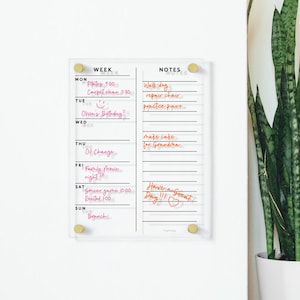 WEEK
NOTES
MON
Pilates 9:00
Carpet clean 2:30
TUE
Owen's Birthday!!
WED
THU
Oil Change
FRI
Family Movie
night!!
SAT
Soccer game 10:00
SUN
Brunch!
Walk dog
repair chair
practice piano
make cake
for Grandma
Have a Great
Day!!!